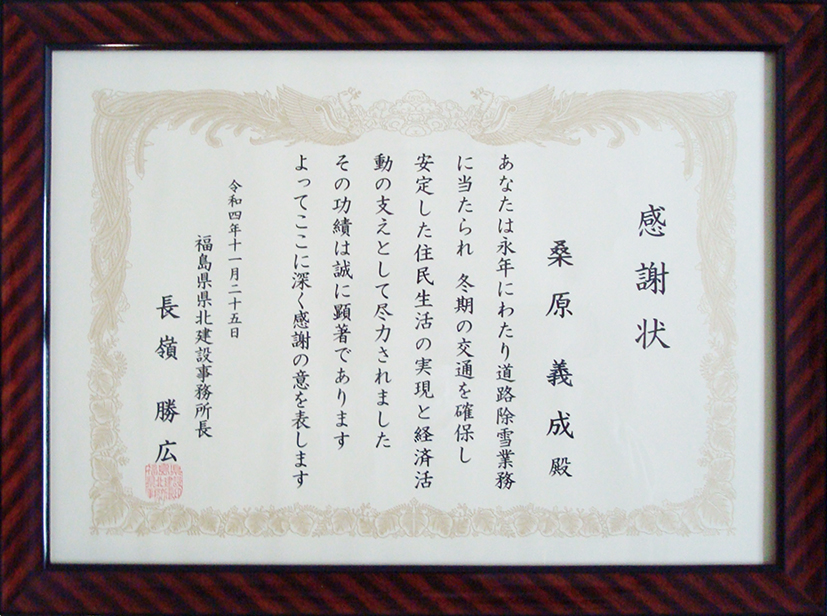 感謝状
桑原義成殿
あなたは永年にわたり道路除雪業務
に当たられ 冬期の交通を確保し
安定した住民生活の実現と経済活
動の支えとして尽力されました
その功績は誠に顕著であります
よってここに深く感謝の意を表します
令和四年十一月二十五日
福島県県北建設事務所長
長嶺勝広